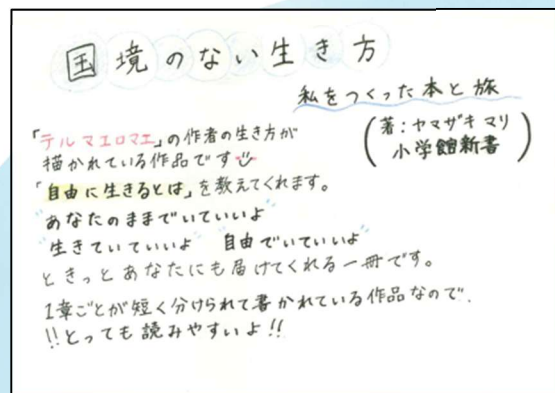 国境のない生き方
私をつくった本と旅
(著:ヤマザキ マリ
小学館新書)
「テルマエロマエ」の作者の生き方が
描かれている作品です
「自由に生きるとは」を教えてくれます。
"あなたのままでいていいよ
"生きていていいよ" 自由でいていいよ"
ときっとあなたにも届けてくれる一冊です。
1章ごとが短く分けられて書かれている作品なので、
!!とっても読みやすいよ!!